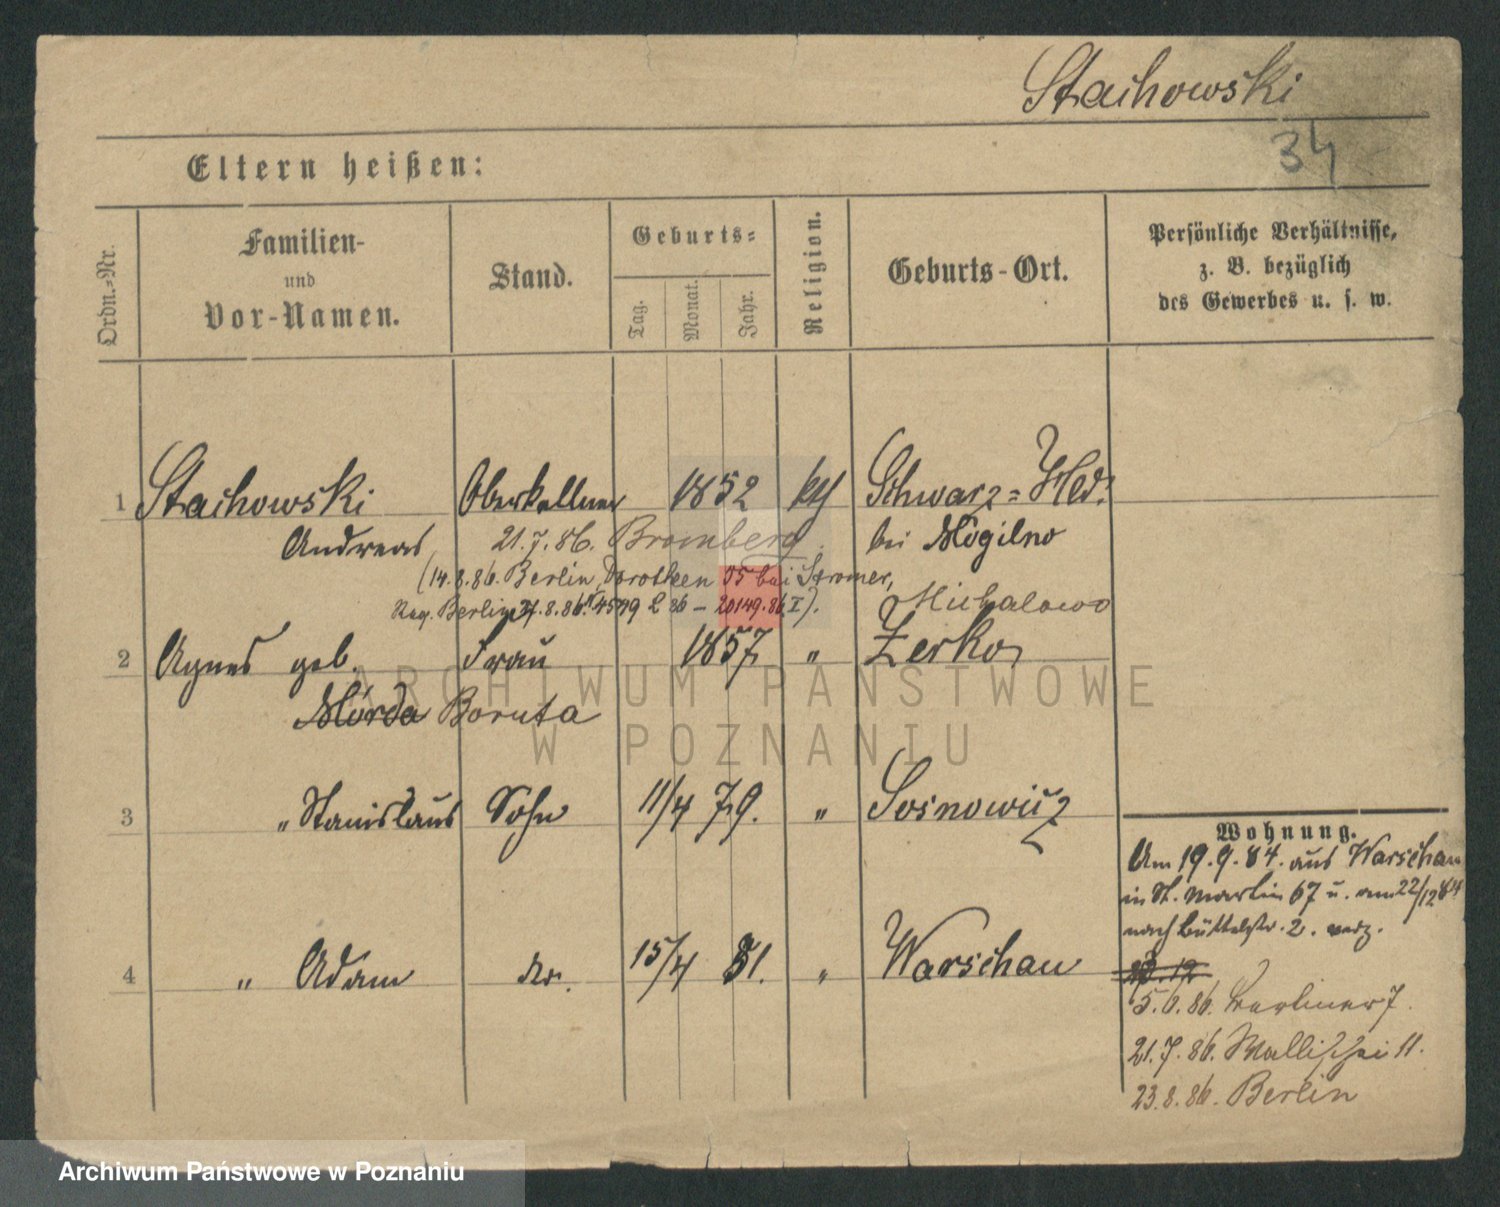 Stachowski
34
Eltern heißen:
Ordn.-Nr.
Familien-
und
Vor-Namen.
Stand.
Geburts-
Tag.
Monat.
Jahr.
Religion.
Geburts-Ort.
Persönliche Verhältnisse,
z. B. bezüglich
des Gewerbes u. s. w.
1 Stachowski Oberkellner 1852 kth Schwarz-Hld.
Andreas 21.7.86. Bromberg. bei Mogilno
(14.8.86. Berlin, Dorotheen 05 bei Stromer,
Reg. Berlin 31.8.86. 4549 L 86 – 20149.86 I). Michalowo
2 Agnes geb. Frau 1857 " Zerkow
Mórda Boruta
3 " Stanislaus Sohn 11/4 79. " Sosnowicz
4 " Adam do. 15/4 81. " Warschau
Wohnung.
Am 19.9.84. aus Warschau
in St. Martin 67 u. am 22/12 84
nach Büttelstr. 2. verz.
23.12
5.6.86. Berliner 7.
21.7.86. Wallischei 11.
23.8.86. Berlin
ARCHIWUM PAŃSTWOWE
W POZNANIU
Archiwum Państwowe w Poznaniu